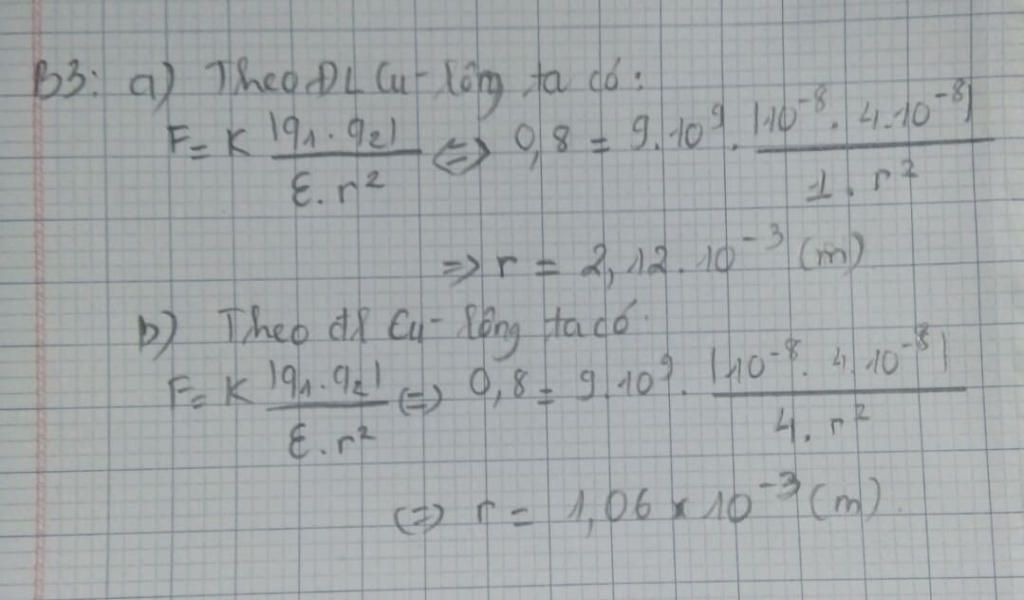 B3: a) Theo ĐL Cu-lông ta có:
F = K |q₁.q₂| / ε.r² ⇔ 0,8 = 9.10⁹ . |10⁻⁸. 4.10⁻⁸| / 1.r²
=> r = 2,12.10⁻³ (m)
b) Theo đl Cu-lông ta có
F = K |q₁.q₂| / ε.r² ⇔ 0,8 = 9.10⁹ . |10⁻⁸. 4.10⁻⁸| / 4.r²
⇔ r = 1,06 × 10⁻³ (m).